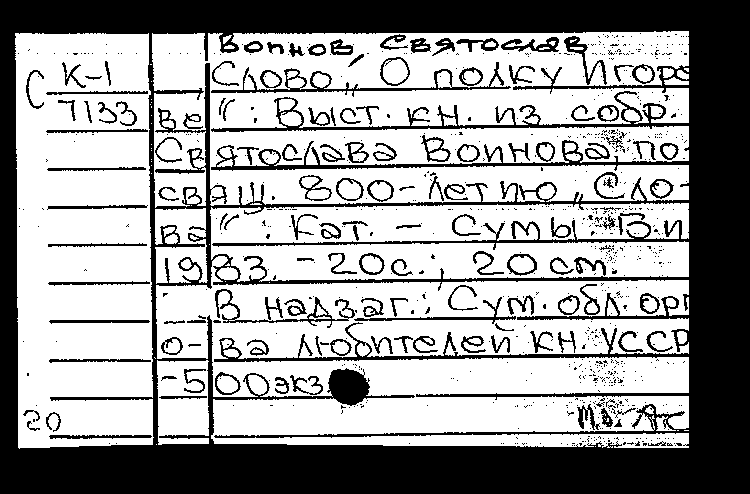 Воинов, Святослав
С К-1 Слово „О полку Игоре
7133 ве“: Выст. кн. из собр.
Святослава Воинова, по-
свящ. 800-летию „Сло-
ва“: Кат. – Сумы: Б.и
1983. – 20с.; 20 см.
В надзаг.: Сум. обл. орг
о-ва любителей кн. УССР
– 500экз
20